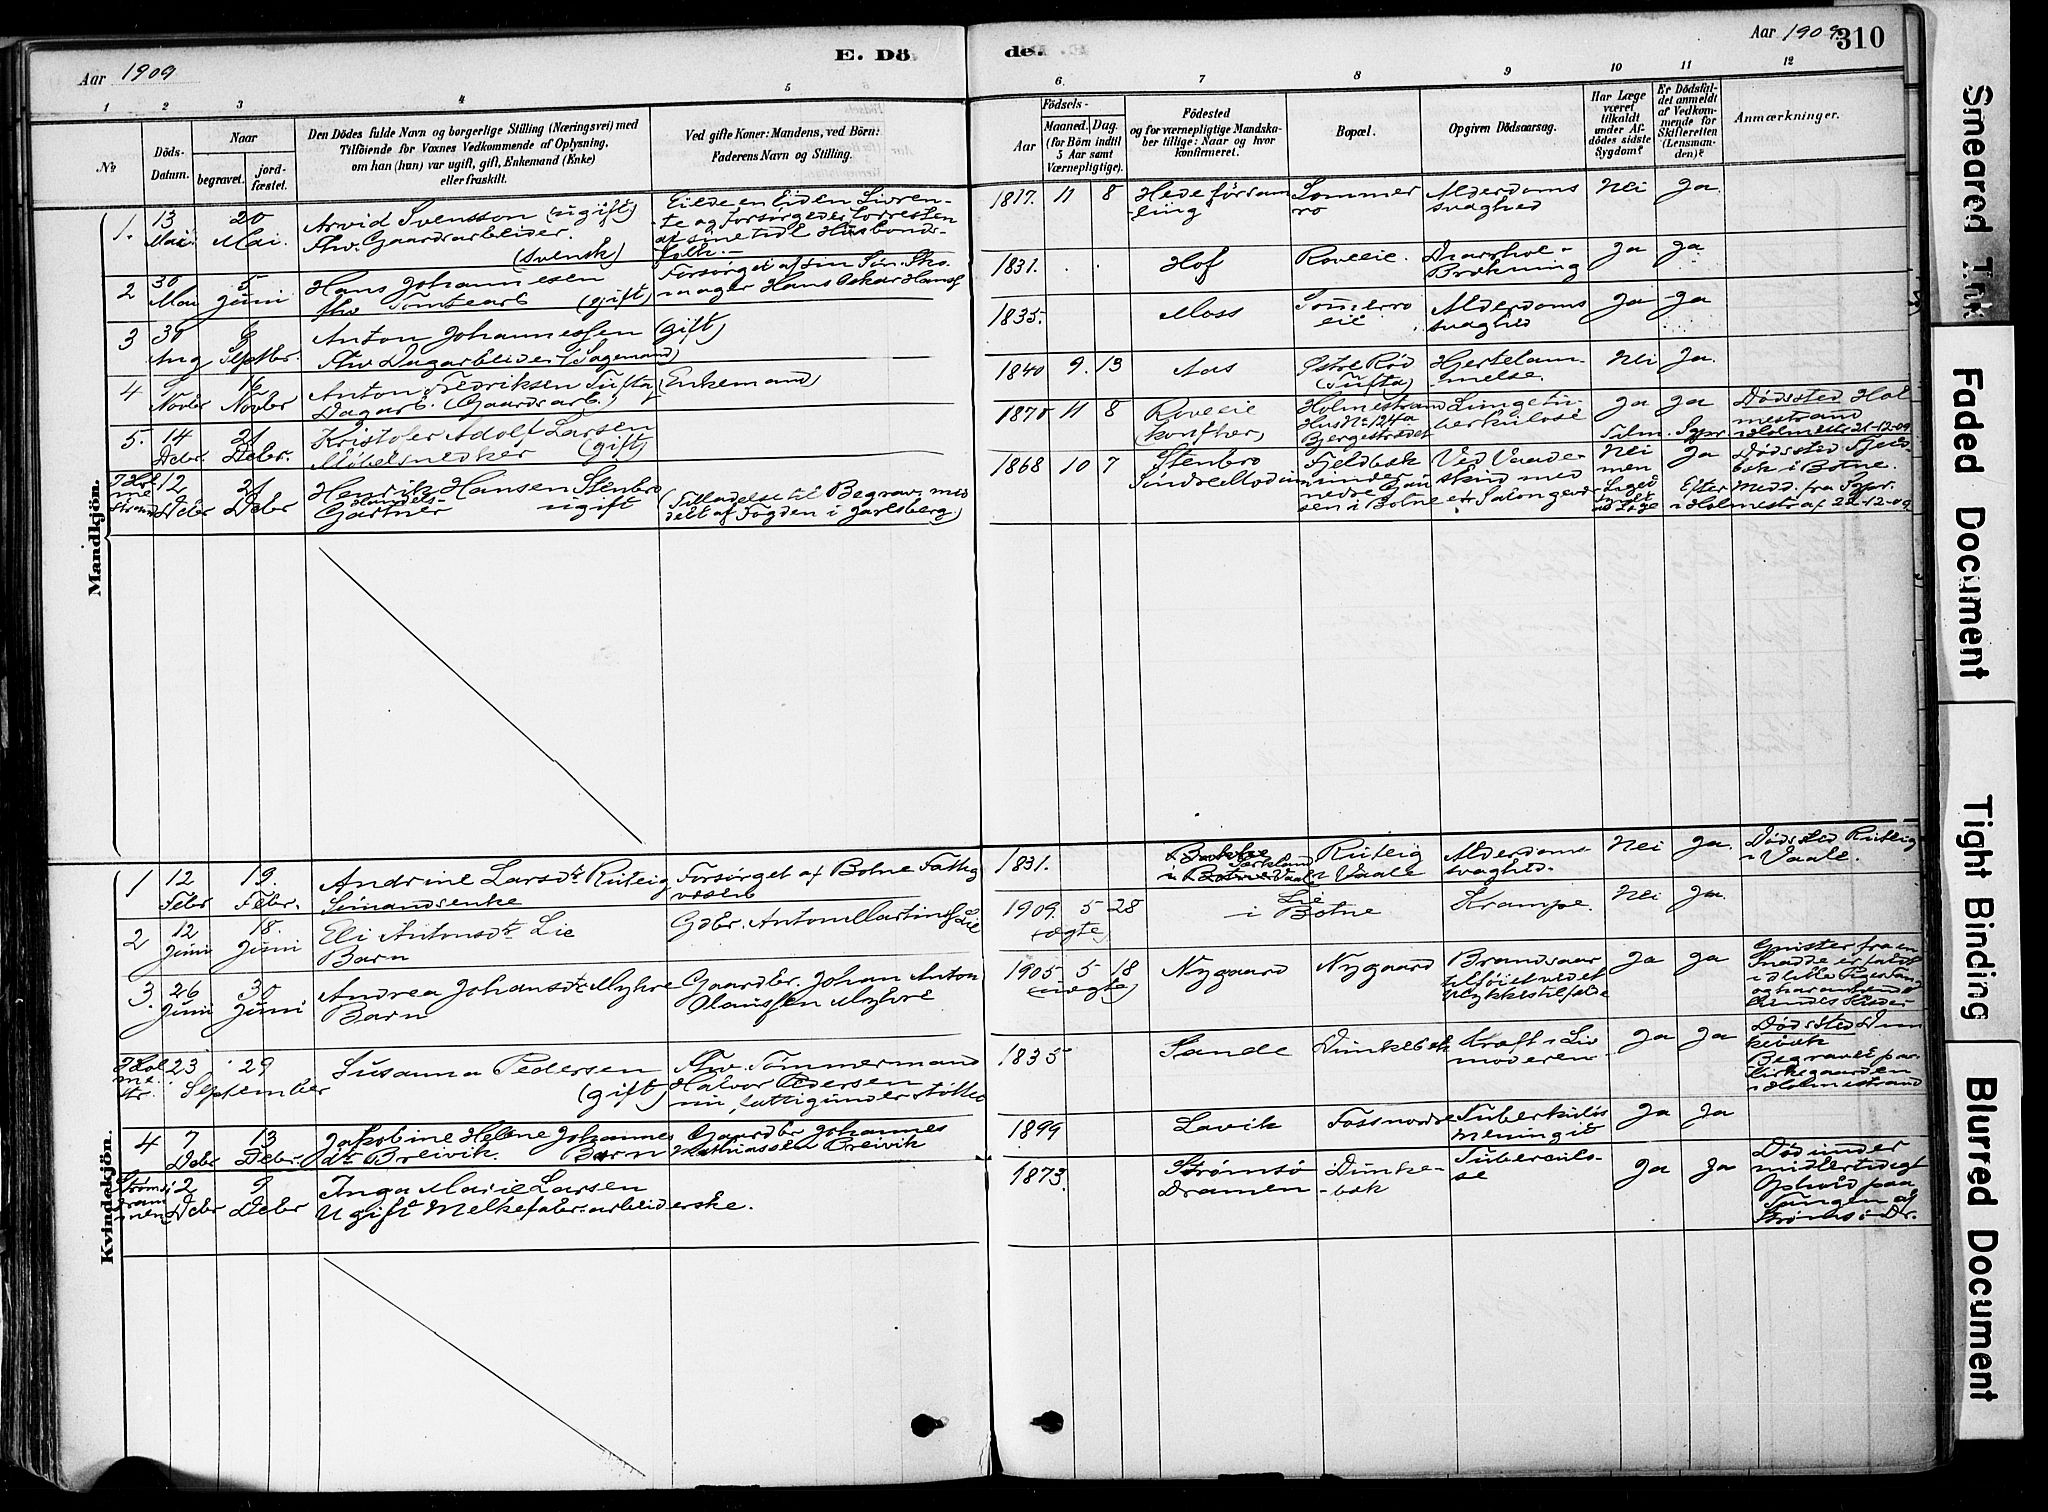 Aar 1909
E. Dö
de.
Aar 1909.
310
1 2 3 4 5
6 7 8 9 10 11 12
No
Döds-
Datum.
Naar
begravet.
jord-
fæstet.
Den Dödes fulde Navn og borgerlige Stilling (Næringsvei) med
Tilföiende for Voxnes Vedkommende af Oplysning,
om han (hun) var ugift, gift, Enkemand (Enke)
eller fraskilt.
Ved gifte Koner: Mandens, ved Börn:
Faderens Navn og Stilling.
Födsels-
Aar
Maaned.
Dag.
(for Börn indtil
5 Aar samt
Værnepligtige).
Födested
og for værnepligtige Mandska-
ber tillige: Naar og hvor
konfirmeret.
Bopæl.
Opgiven Dödsaarsag.
Har Læge
været
tilkaldt
under Af-
dödes sidste
Sygdom?
Er Dödsfal-
det anmeldt
af Vedkom-
mende for
Skifteretten
(Lensman-
den)?
Anmærkninger.
Mandkjön.
1. 13 Mai 20 Mai.
Arvid Svensson (ugift)
Fhv. Gaardsarbeider.
(svensk)
Eiede en liden Livren-
te og forsörgedes forresten
af sine tidl. Husbonds-
folk.
1817. 11 8
Hede försam
-ling
Sommer
ro
Alderdoms
svaghed
Nei
Ja.
2 30 Mai 5 Juni
Hans Johannesen
fhv Tomtearb (gift)
Forsörget af sin Sön Sko-
mager Hans Oskar Hansen
1831. . .
Hof
Roveeie.
Ja
Ja
3 30 Aug 6 Septbr.
Anton Johannessen (gift)
Fhv Dagarbeider (Sagmand)
1835.
Moss
eie
Alderdoms
svaghed
Ja
Ja
4 Novbr 16 Novbr
Anton Fredriksen Tufta (Enkemand)
Dagarb. (Gaardsarb.)
1840 9. 13
Aas
Østre Rød
(Tufta)
Hjertelam-
melse.
Nei
Ja.
5. 14 Debr. 21 Debr.
Kristofer Adolf Larsen
Möbelsnedker (gift)
1870 11 8
Roveeie
Holmestrand
Hus No 124a
Bjergestrædet
Lungetu-
berkulose
Ja
Ja
Dødssted Hol
mestrand
i Holmestr 21-12-09
12 Debr 21 Debr
Henrik Hansen Stenbro
Handels-
Gartner ugift
(Tilladelse til Begrav. med
delt af Fogden i Jarlsberg.)
1868 10 7
Stenbro
Fjeldbæk
sen i Botne
Nei
men
Ja
bæk i Botne.
Efter Medd. fra
i Holmestr af 22-12-09
Kvindekjön.
1 12 Febr 19. Febr.
Andrine Larsdtr Ruteig
Sömandsenke
Forsörget af Botne Fattig
væsen
1831.
Ruteig
i Vaale
Alderdoms
svaghed.
Nei
Ja.
Dødssted Ruteig
i Vaale.
2 12 Juni 18. Juni
Eli Antonsdtr Lie
Barn
Gdbr. Anton Martinsen Lie
1909. 5 28
(ægte)
Lie
i Botne
Krampe.
Nei
Ja.
3. 26 Juni 30 Juni
Andrea Johansdtr Myhre
Barn
Gaardbr. Johan Anton
Olaussen Myhre
1905 5 18
(uægte)
Nygaard
Nygaard
Brandsaar
tilföiet ved et
Ulykkestilfælde
Ja
Ja
Gnister fra en
23 29
September
Susanna Pedersen
(gift)
Fhv. Tömmermand
Halvor Pedersen
nu fattigunderstöttet
1835
Sande
Dunkebæk
Kræft i Liv
moderen
Ja
Ja
Dødsted Dun
kebæk
Begravet paa
Kirkegaarden
i Holmestrand
4 7 Debr 13 Debr.
Jakobine Helene Johannes
dtr Breivik. Barn
Gaardbr Johannes
Mathiassen Breivik
1899
Lavik
Tuberkulös
Meningit
Ja
Ja
2 Debr 9 Debr
Inga Marie Larsen
Ugift Melkefabr.-arbeiderske.
1873.
Strømsö
Dramen
Dunke-
-bæk
Tuberculo-
se
Ja
Ja
Död under
midlertidigt
Ophold paa
Tangen af
Strömsö i Dr.
Smeared Ink
Faded Document
Tight Binding
Blurred Document